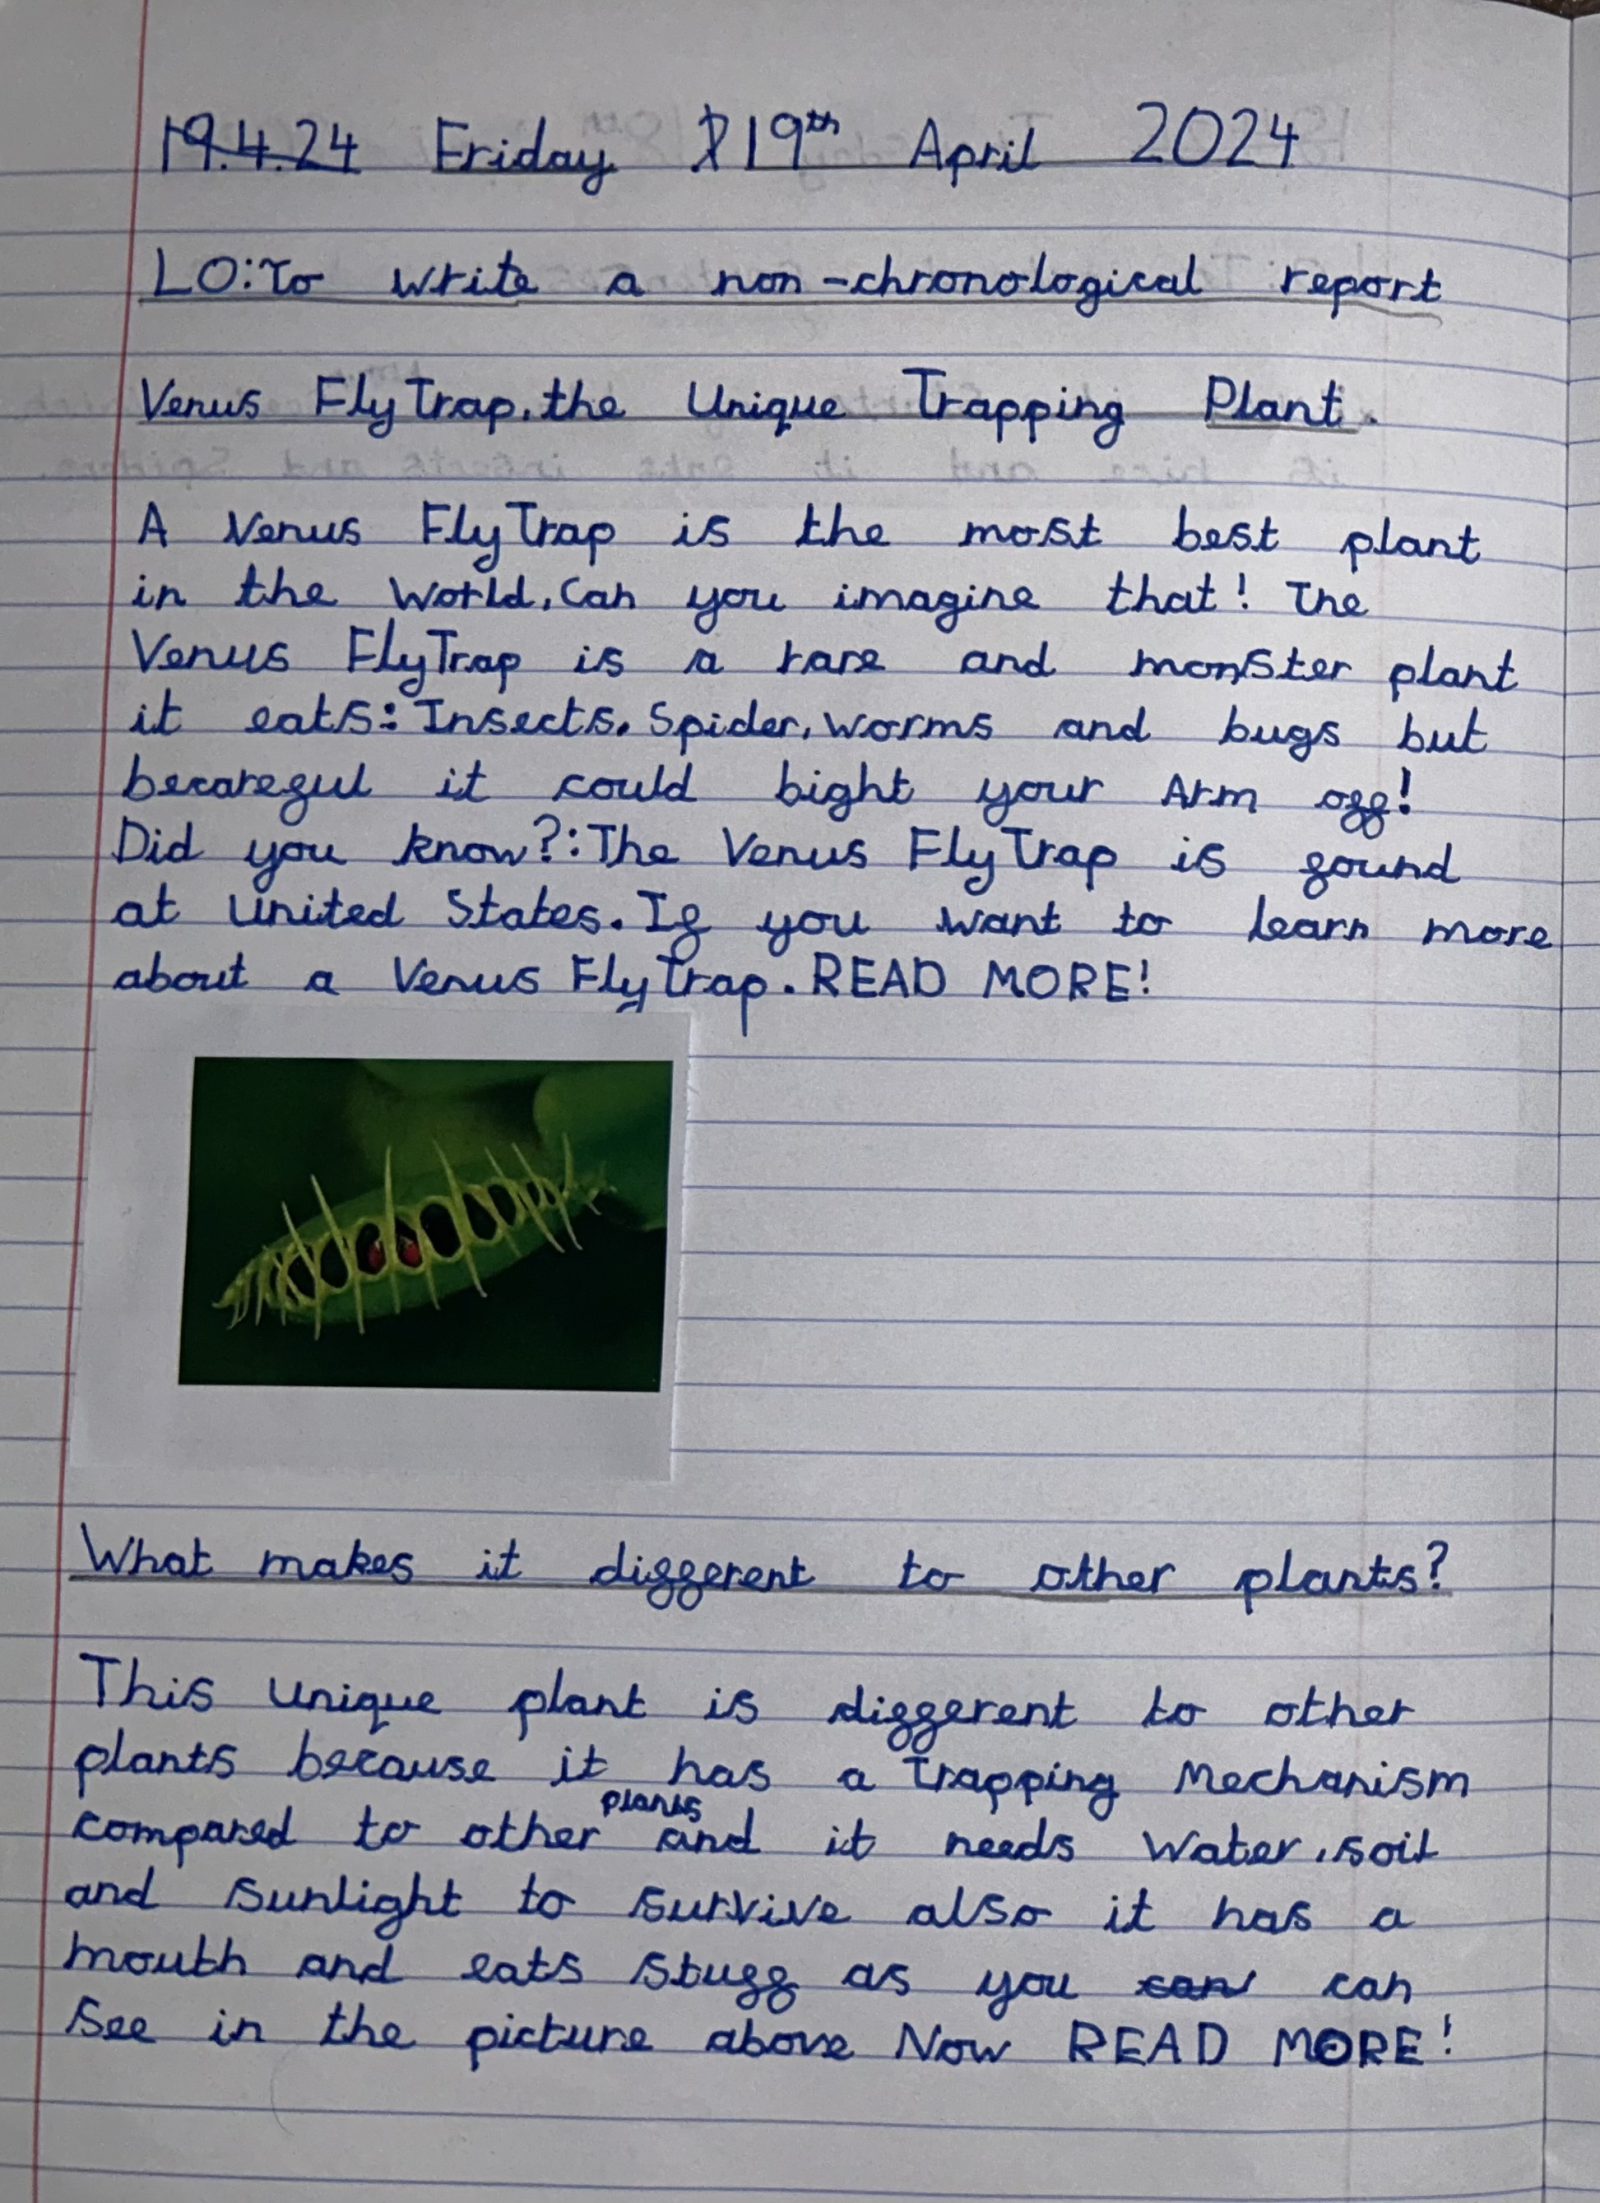 19.4.24 Friday 19th April 2024
LO: To write a non-chronological report
Venus FlyTrap, the Unique Trapping Plant.
A Venus FlyTrap is the most best plant
in the World, Can you imagine that! The
Venus FlyTrap is a rare and monster plant
it eats: Insects, Spider, worms and bugs but
becareful it could bight your Arm off!
Did you know?: The Venus FlyTrap is found
at United States. If you want to learn more
about a Venus FlyTrap. READ MORE!
What makes it different to other plants?
This unique plant is different to other
plants because it has a Trapping Mechanism
compared to other plants and it needs Water, soil
and sunlight to survive also it has a
mouth and eats stuff as you can can
see in the picture above Now READ MORE!